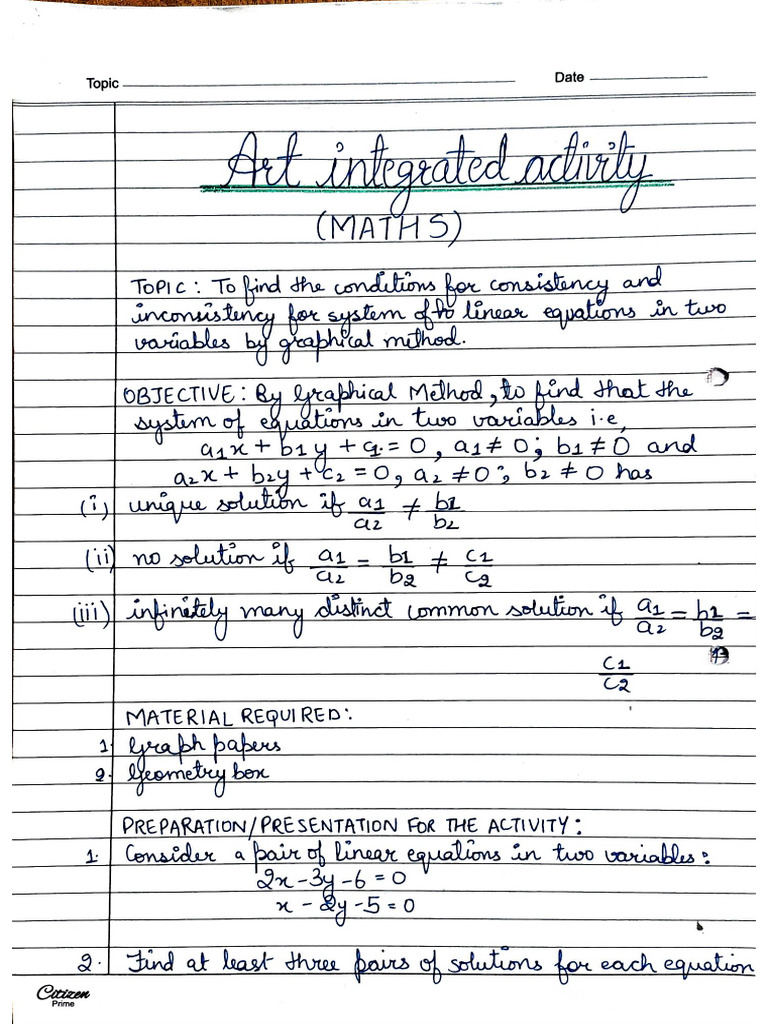 Topic Date
Art integrated activity
(MATHS)
TOPIC: To find the conditions for consistency and
inconsistency for system of linear equations in two
variables by graphical method.
OBJECTIVE: By Graphical Method, to find that the
system of equations in two variables i.e,
a1x + b1y + c1 = 0, a1 ≠ 0; b1 ≠ 0 and
a2x + b2y + c2 = 0, a2 ≠ 0; b2 ≠ 0 has
(i) unique solution if a1/a2 ≠ b1/b2
(ii) no solution if a1/a2 = b1/b2 ≠ c1/c2
(iii) infinitely many distinct common solution if a1/a2 = b1/b2 =
c1/c2
MATERIAL REQUIRED:
1. Graph papers
2. Geometry box
PREPARATION/PRESENTATION FOR THE ACTIVITY:
1. Consider a pair of linear equations in two variables:
2x - 3y - 6 = 0
x - 2y - 5 = 0
2. Find at least three pairs of solutions for each equation
Citizen
Prime